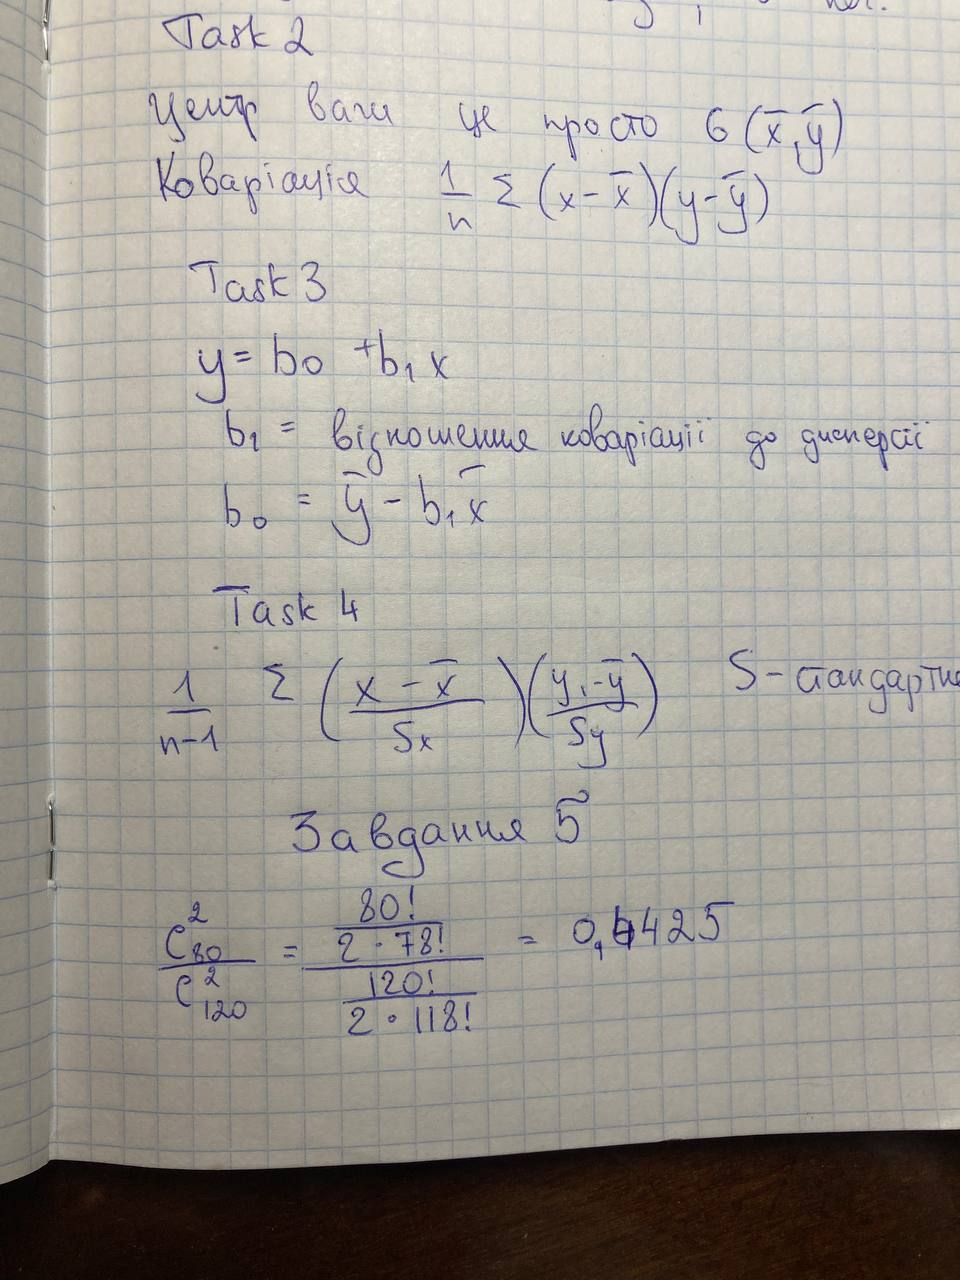 Task 2
Центр ваги це просто G (x̄, ȳ)
Коваріація 1/n Σ (x - x̄)(y - ȳ)
Task 3
y = b0 + b1 x
b1 = відношення коваріації до дисперсії
b0 = ȳ - b1 x̄
Task 4
1/(n-1) Σ ((x - x̄)/Sx)((y, - ȳ)/Sy) S - стандартне
Завдання 5
C²80 / C²120 = (80! / (2 · 78!)) / (120! / (2 · 118!)) = 0,4425